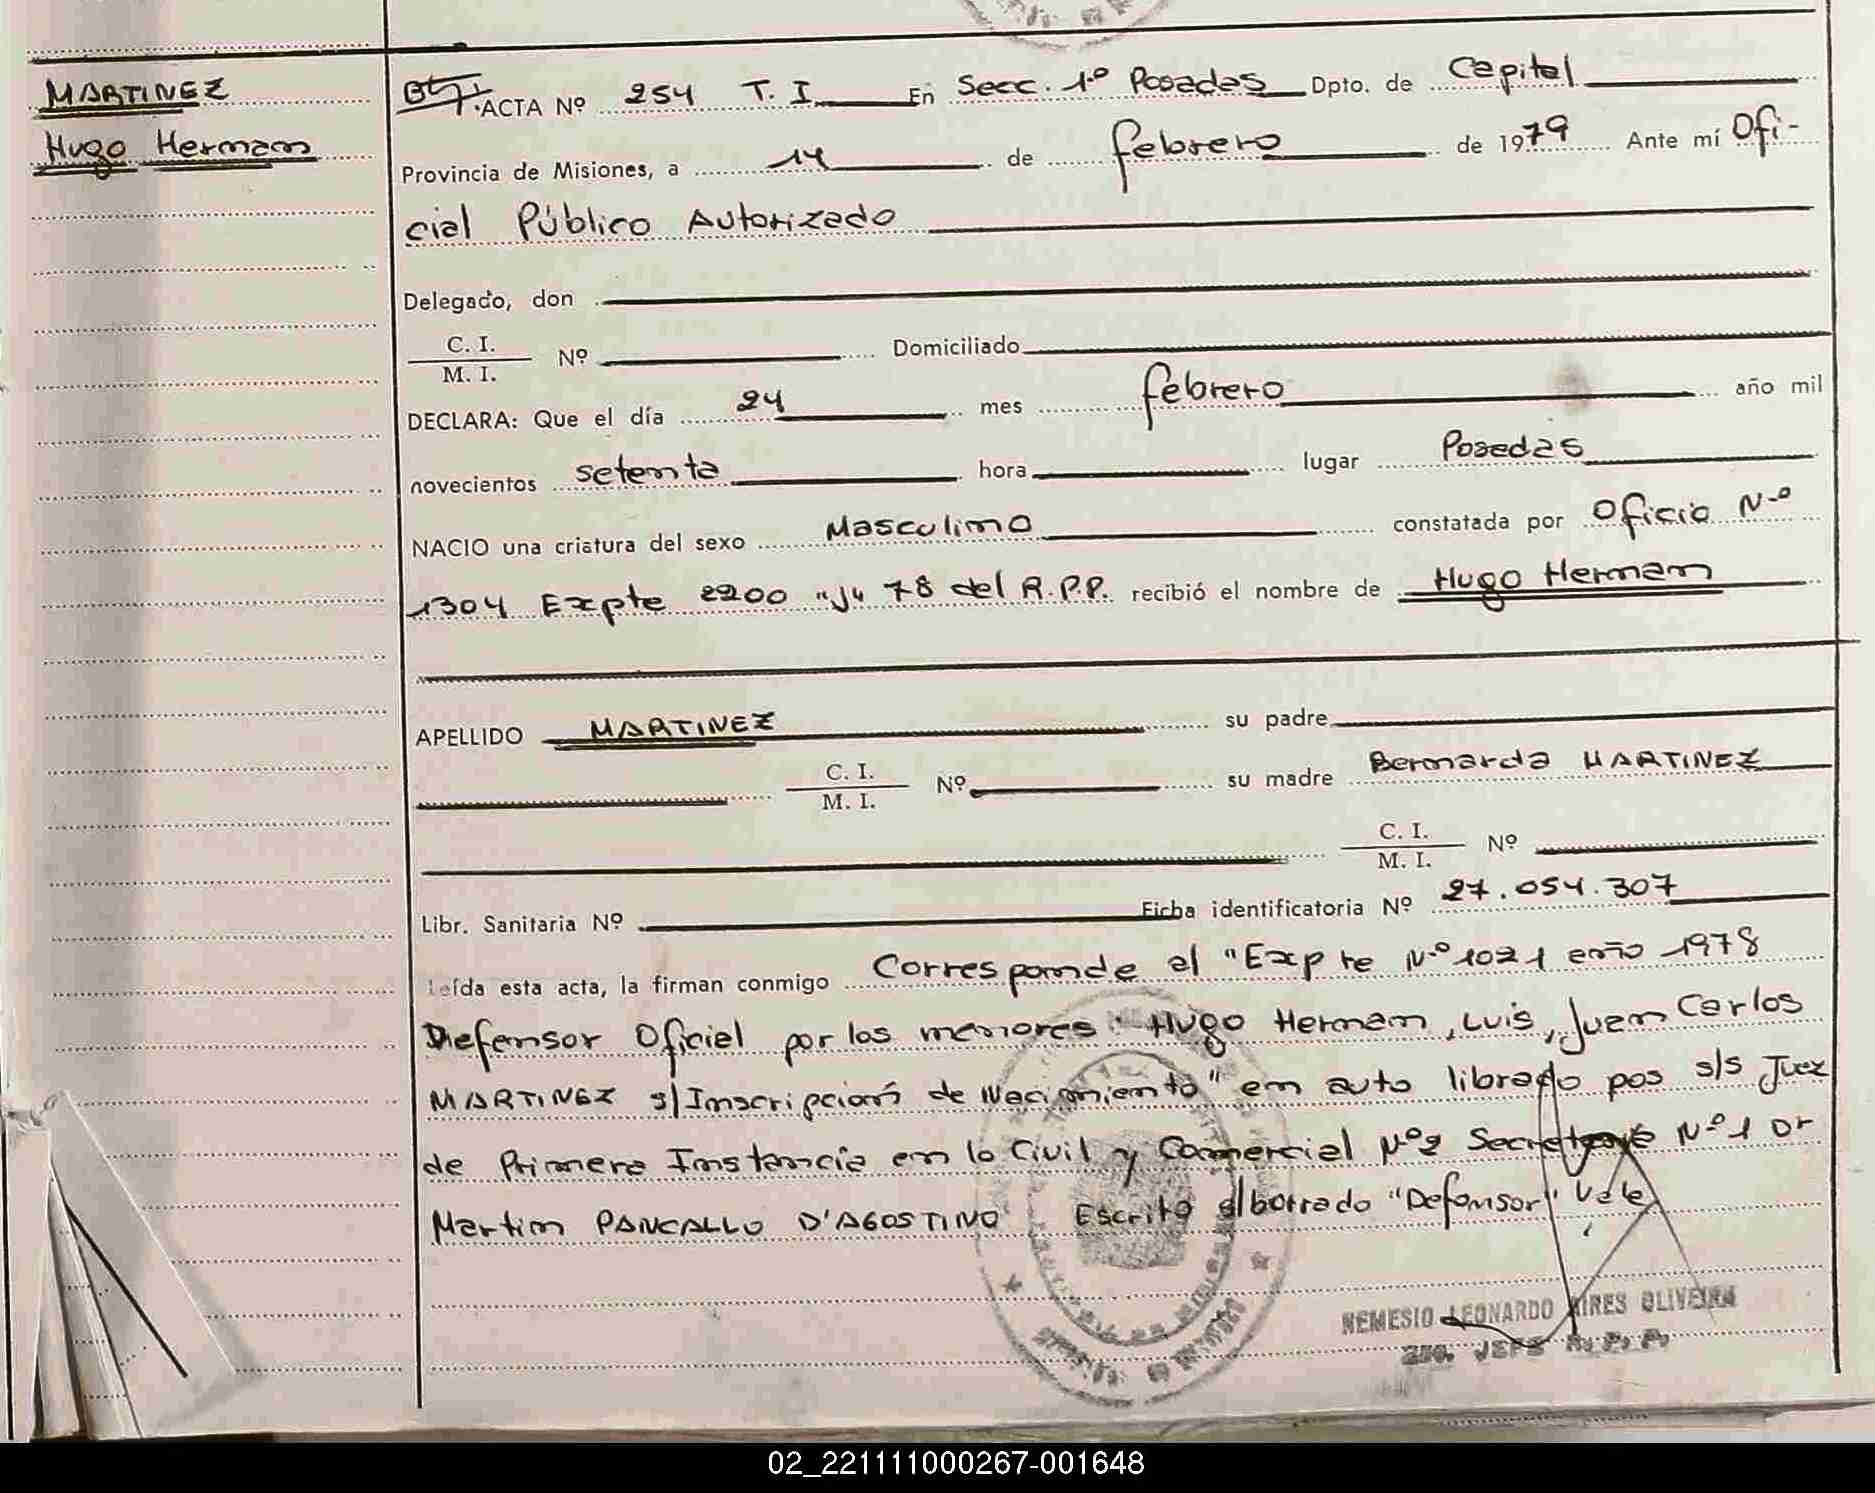 MARTINEZ
Hugo Hernan
ACTA Nº 254 T. I En Secc. 1º Posadas Dpto. de Capital
Provincia de Misiones, a 14 de febrero de 1979 Ante mí Ofi-
cial Público Autorizado
Delegado, don
C. I.
M. I. Nº Domiciliado
DECLARA: Que el día 24 mes febrero año mil
novecientos setenta hora lugar Posadas
NACIO una criatura del sexo Masculino constatada por Oficio Nº
1304 Expte 2200 "J" 78 del R.P.P. recibió el nombre de Hugo Hernan
APELLIDO MARTINEZ su padre
C. I.
M. I. Nº su madre Bernarda MARTINEZ
C. I.
M. I. Nº
Libr. Sanitaria Nº Ficha identificatoria Nº 27.054.307
Leída esta acta, la firman conmigo Corresponde al "Expte Nº 1021 año 1978
Defensor Oficial por los menores: Hugo Hernan, Luis, Juan Carlos
MARTINEZ s/Inscripción de Nacimiento" en auto librado pos s/s Juez
de Primera Instancia en lo Civil y Comercial Nº 2 Secretaria Nº 1 Dr
Martin PANCALLO D'AGOSTINO Escrito s/borrado "Defensor" Vale
NEMESIO LEONARDO AIRES OLIVEIRA
2do. JEFE R. P. P.
02_221111000267-001648